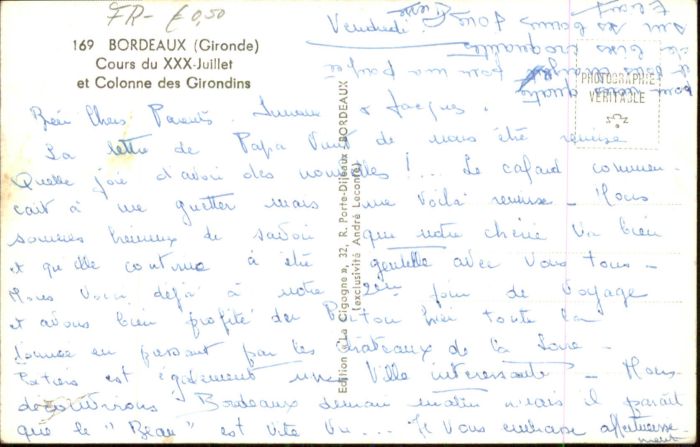 FR - £ 0,50
169 BORDEAUX (Gironde)
Cours du XXX-Juillet
et Colonne des Girondins
Vendredi
PHOTOGRAPHIE
VÉRITABLE
Edition " La Cigogne », 32, R. Porte-Dijeaux BORDEAUX
(exclusivité André Leconte)
Bien Chers Parents. & Jacques.
La lettre de Papa Vient de nous être remise
Quelle joie d'avoir des nouvelles !... Le cafard commen-
cait à me guetter mais me voilà remise - Nous
sommes heureux de savoir que notre chérie Va bien
et qu'elle continue à être gentille avec Vous tous -
Nous Voici déjà à notre 2ème jour de Voyage
et avons bien profité du hier toute la
journée en passant par les châteaux de la Loire -
Poitiers est également une Ville interessante - Nous
découvrirons Bordeaux demain matin mais il paraît
que le "Beau" est vite Vu... Je Vous embrasse affectueuse-
ment